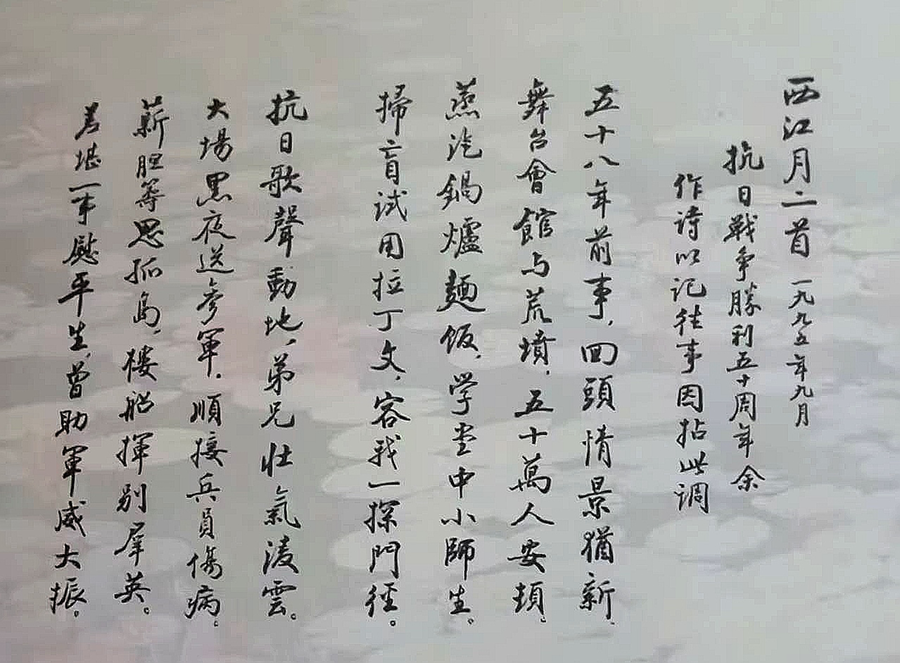 西江月二首 一九九五年九月
抗日戰争勝利五十周年余
作诗以记往事因拈此调
五十八年前事，回頭情景猶新。
舞台會館与荒墳，五十萬人安頓。
蒸汽鍋爐麵饭，学堂中小師生。
掃盲试用拉丁文，容我一探門径。
抗日歌聲動地，弟兄壮氣凌雲。
大場黑夜送参軍，順接兵員傷病。
薪胆籌思孤島，楼船揮别羣英。
差堪一事慰平生，曾助軍威大振。